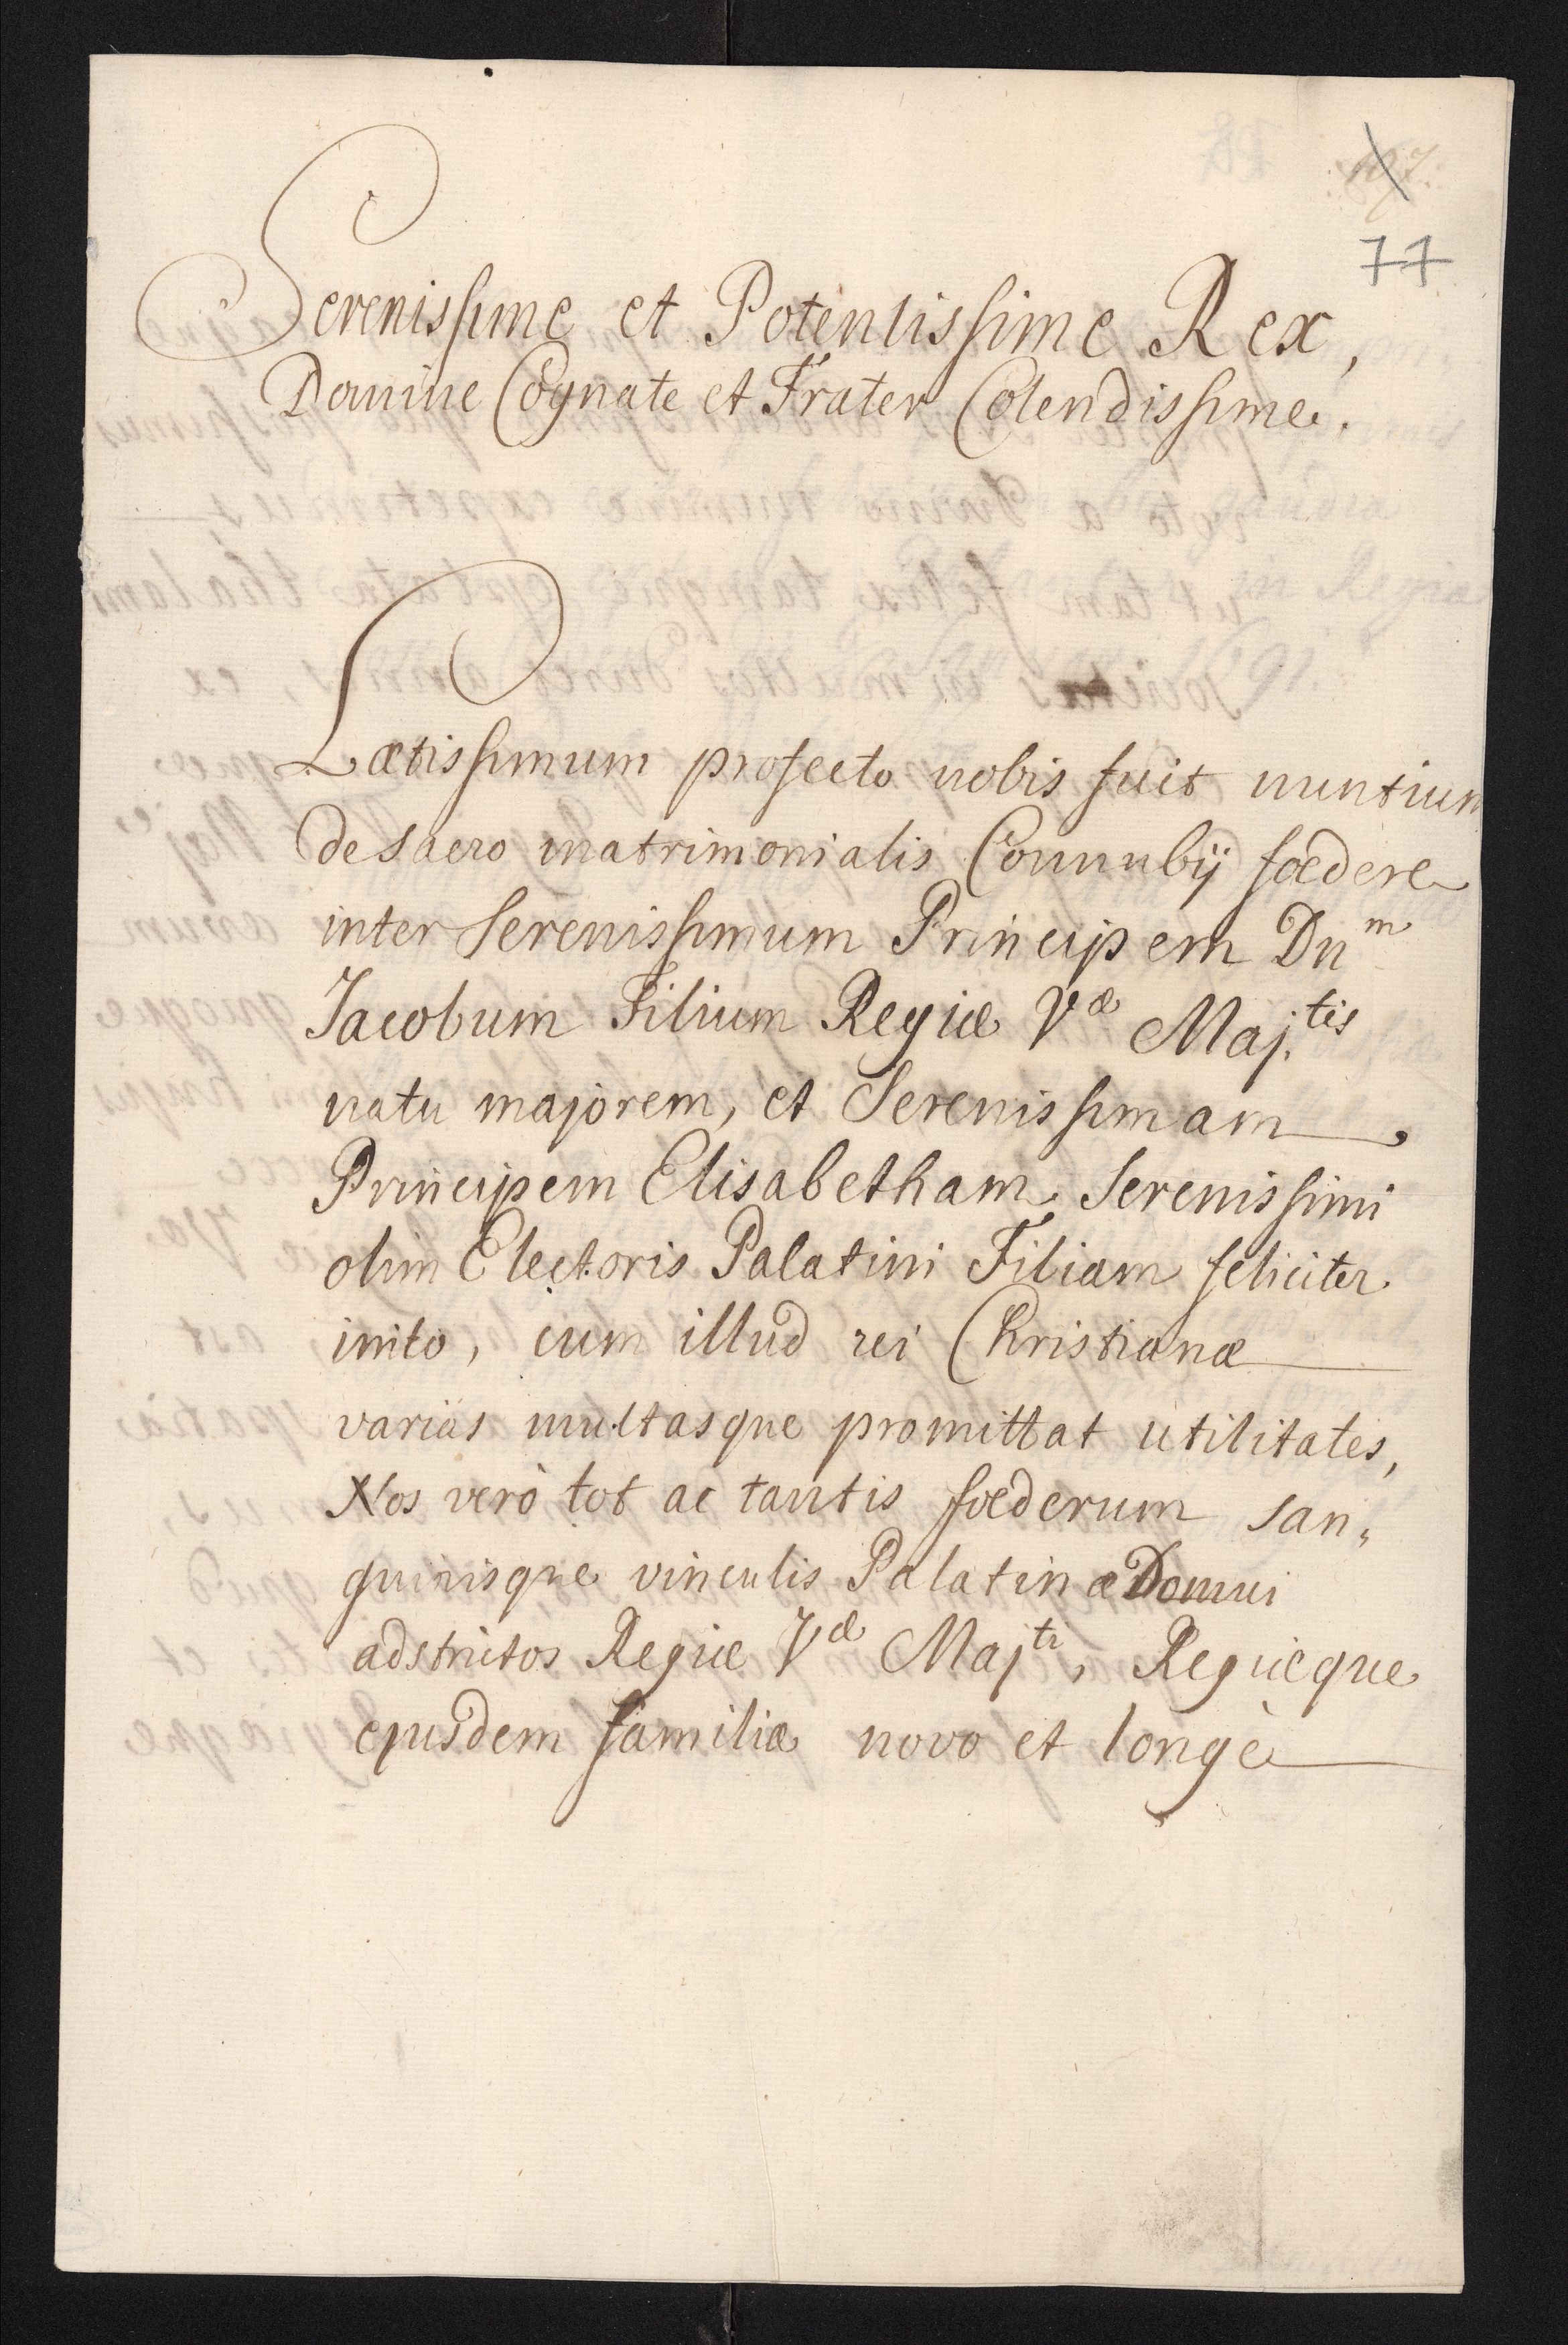 77
Serenissime et Potentissime Rex,
Domine Cognate et Frater Colendissime.
Lætissimum profecto nobis fuit nuntium
de sacro matrimonialis Connubÿ fœdere
inter Serenissimum Principem Dnm
Jacobum Filium Regiæ Væ Maj.tis
natu majorem, et Serenissimam
Principem Elisabetham Serenissimi
olim Electoris Palatini Filiam feliciter
inito, cum illud rei Christianæ
varias multasque promittat utilitates,
Nos verò tot ac tantis fœderum san„
guinisque vinculis Palatinæ Domui
adstrictos Regiæ Væ Majti, Regiæque
ejusdem familiæ novo et longè